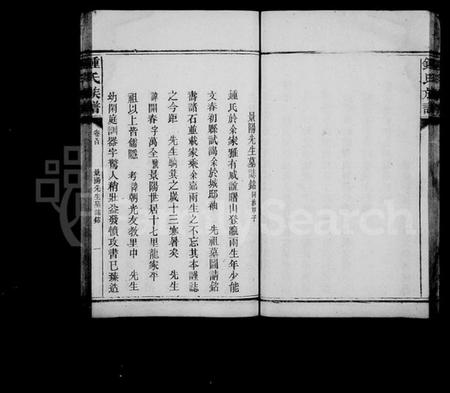 景陽先生墓誌銘 同治甲子
鍾氏於余家雅有戚誼曙山登瀛兩生年少能
文春初縣試謁余於城邸袖 先祖墓圖請銘
壽諸石並載家乘余嘉兩生之不忘其本謹誌
之今距 先生騎箕之歲十三寒暑矣 先生
諱開春字萬全號景陽世居十七里龍家平
祖以上皆儒隱 考諱朝光友教里中 先生
幼聞庭訓器宇驚人稍壯益發憤攻書已臻造
鍾氏族譜
卷首
景陽先生墓誌銘
一
鍾氏族譜